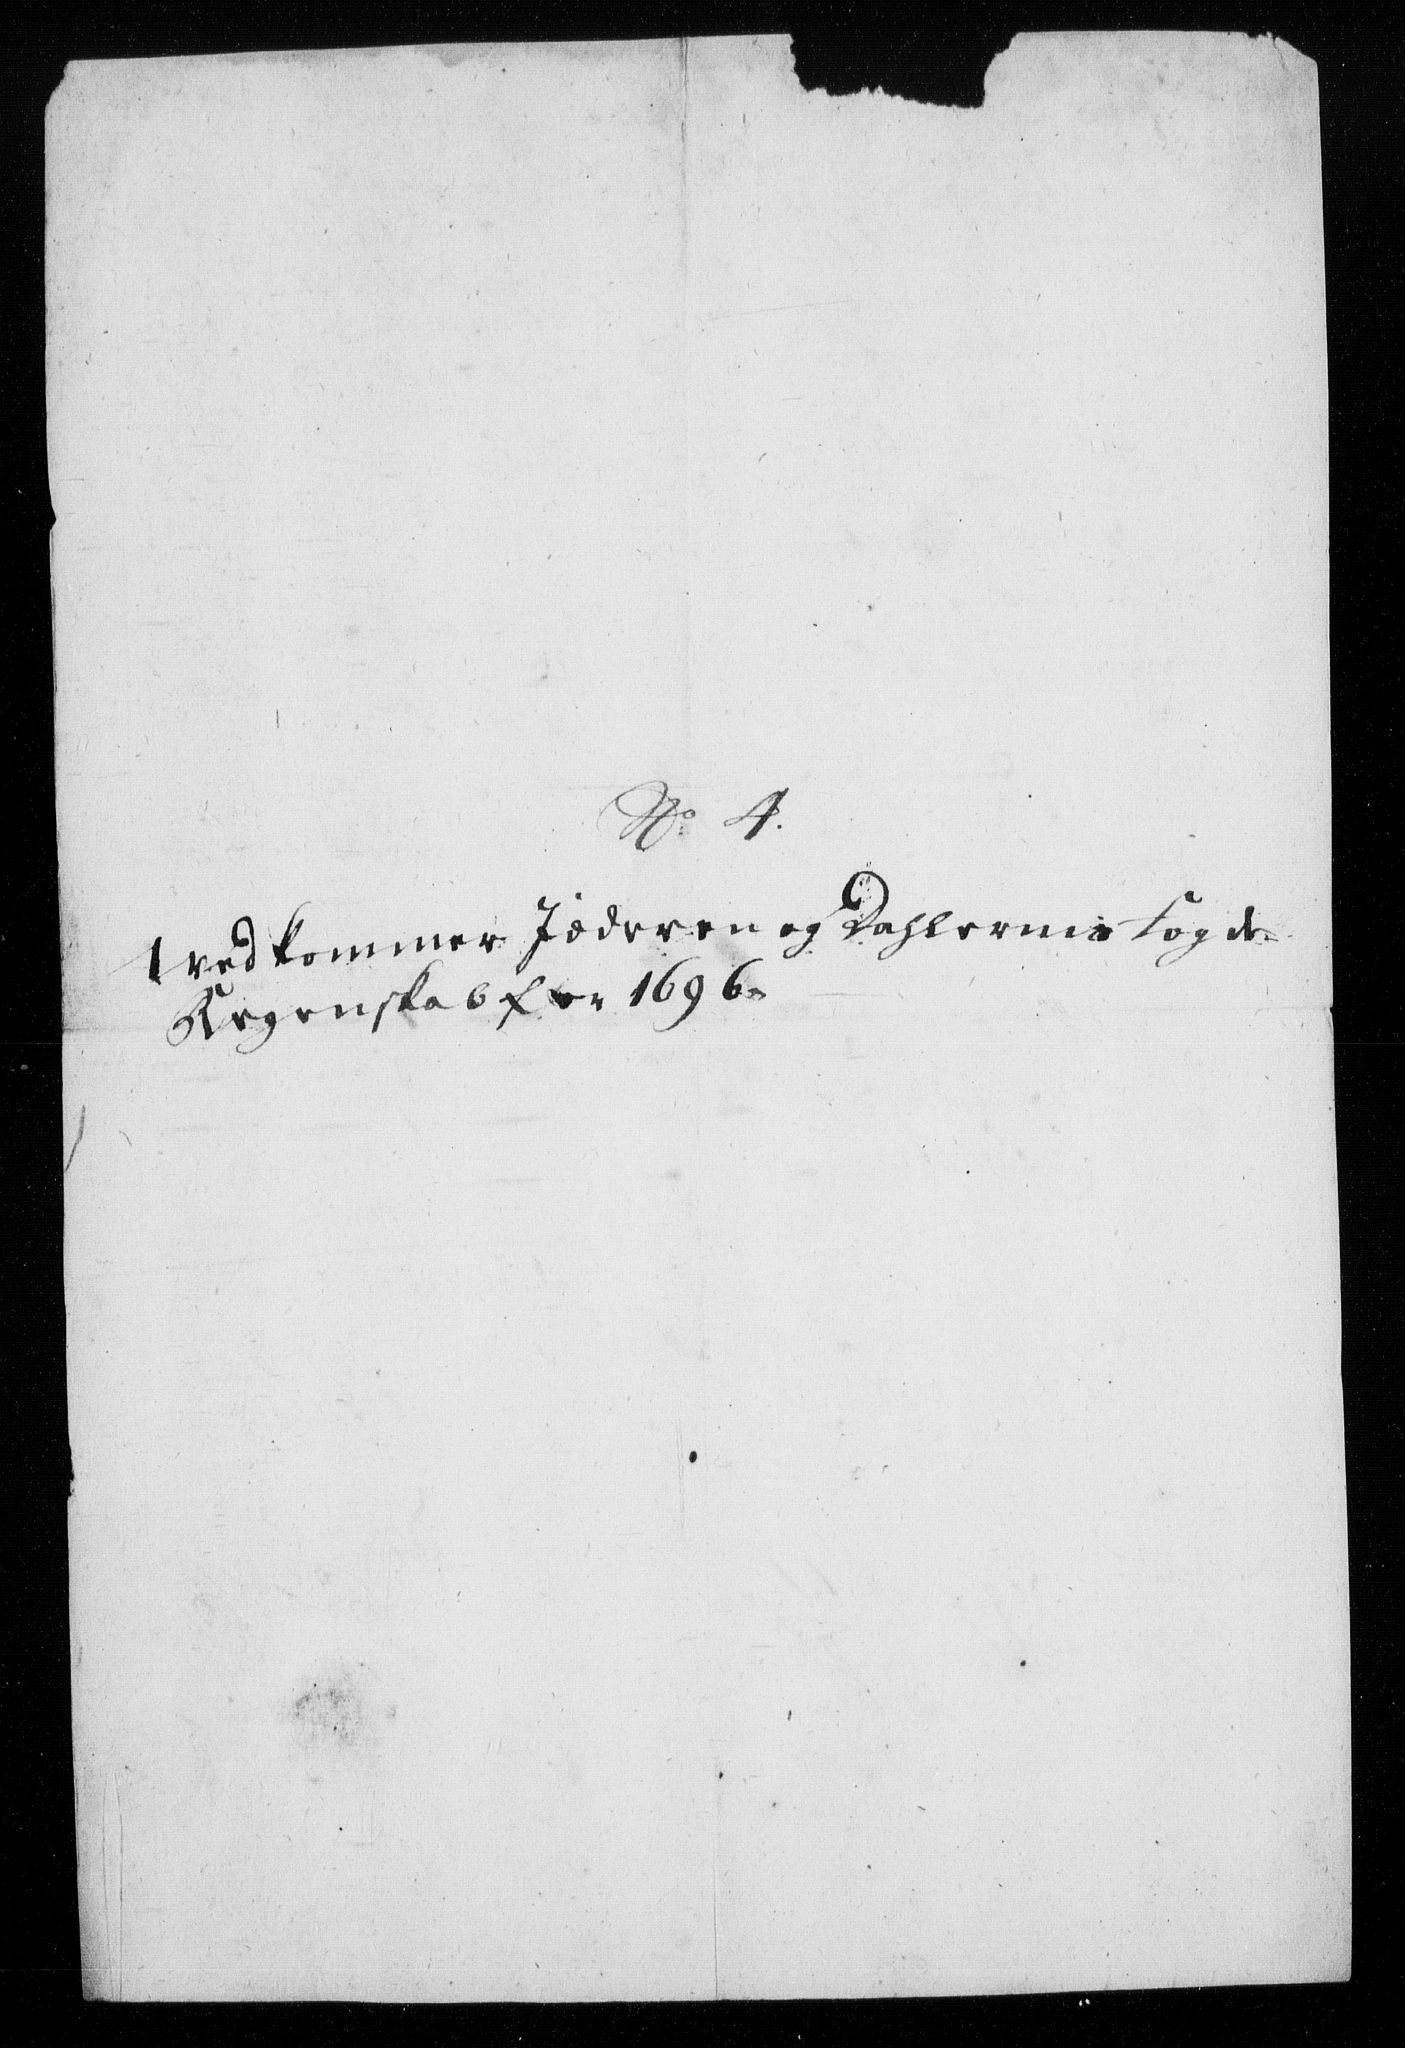 No 4.
vedkommer Jæderen og Dahlernis fogde-
Regenskab for 1696.